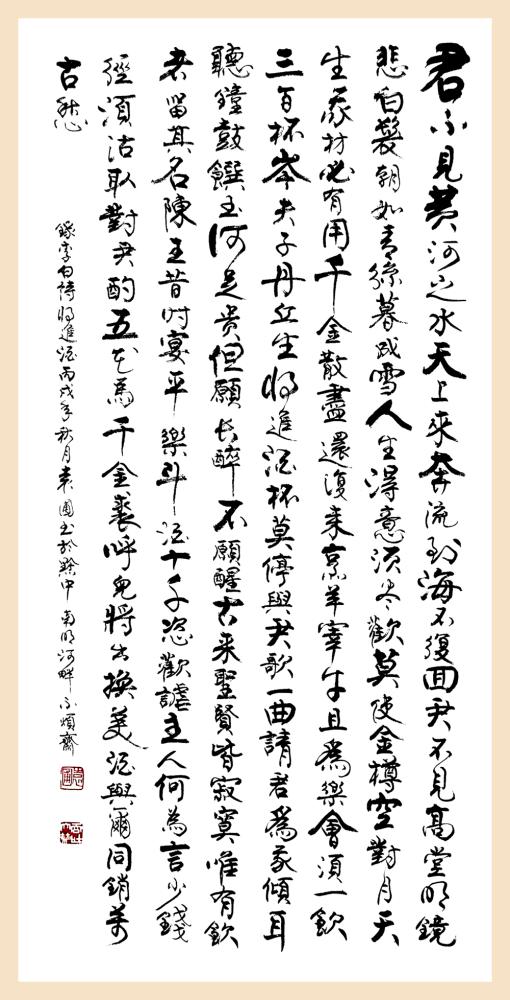 君不見黄河之水天上來奔流到海不復回君不見高堂明鏡
悲白髮朝如青絲暮成雪人生得意須尽歡莫使金樽空對月天
生我材必有用千金散盡還復来烹羊宰牛且為樂會須一飲
三百杯岑夫子丹丘生將進酒杯莫停與君歌一曲請君為我傾耳
聽鐘鼓饌玉何足贵但願長醉不願醒古来聖賢皆寂寞唯有飲
者留其名陳王昔时宴平樂斗酒十千恣歡謔主人何為言少錢
徑須沽取對君酌五花馬千金裘呼兒將出換美酒與爾同銷萬
古愁
錄李白詩將進酒丙戌年秋月袁圃书於黔中南明河畔不煩齋